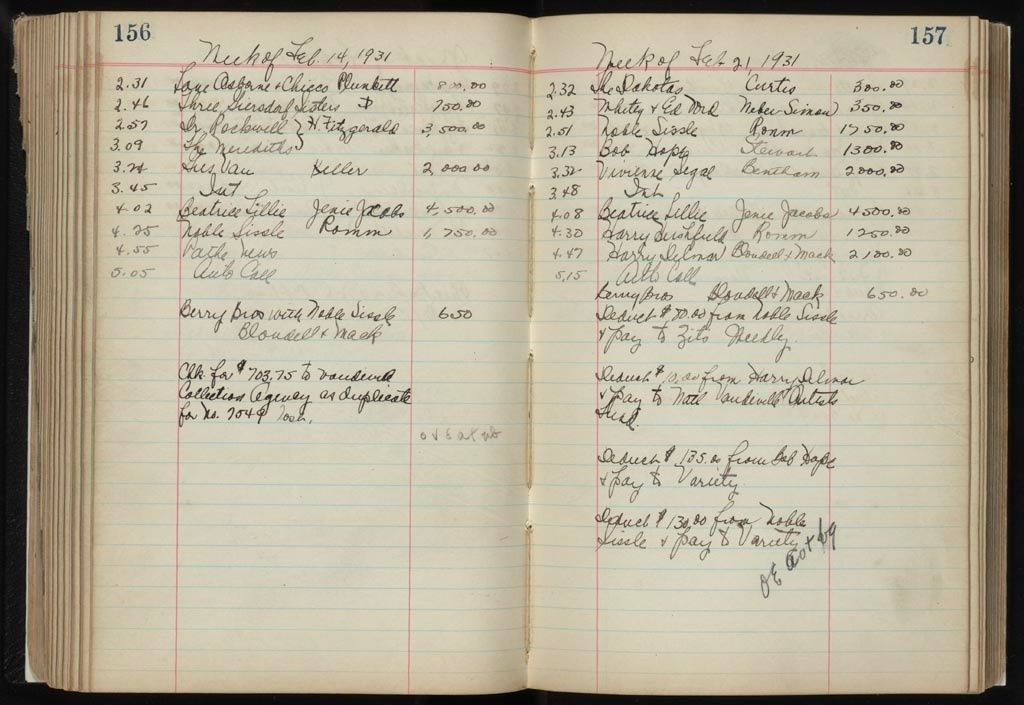 156
Week of Feb. 14, 1931
2.31 Faye Osborne & Chicco Plunkett 800.00
2.46 Three Giersdorf Sisters 750.00
2.57 Dr. Rockwell } H. Fitzgerald 3,500.00
3.09 The Merediths }
3.24 Gus Van Keller 2,000.00
3.45 Int
4.02 Beatrice Lillie Jenie Jacobs 4,500.00
4.25 Noble Sissle Romm 1,750.00
4.55 Pathe News
5.05 Auto Call
Berry Bros with Noble Sissle 650
Blondell & Mack
Chk. for $703.75 to Vaudeville
Collection Agency as duplicate
for No. 7049
157
Week of Feb 21, 1931
2.32 The Dakotas Curtis 500.00
2.43 Whitey & Ed Ford Weber-Simon 350.00
2.51 Noble Sissle Romm 1750.00
3.13 Bob Hope Stewart 1300.00
3.32 Vivienne Segal Bentham 2000.00
3.48 Int.
4.08 Beatrice Lillie Jenie Jacobs 4500.00
4.30 Harry Hirshfield Romm 1250.00
4.47 Harry Delmar Blondell & Mack 2100.00
5.15 Auto Call
Berry Bros Blondell & Mack 650.00
Deduct $70.00 from Noble Sissle
& pay to Zits Weekly.
Deduct $10.00 from Harry Delmar
& pay to Natl Vaudeville Artists
Fund.
Deduct $135.00 from Bob Hope
& pay to Variety.
Deduct $130.00 from Noble
Sissle & pay to Variety